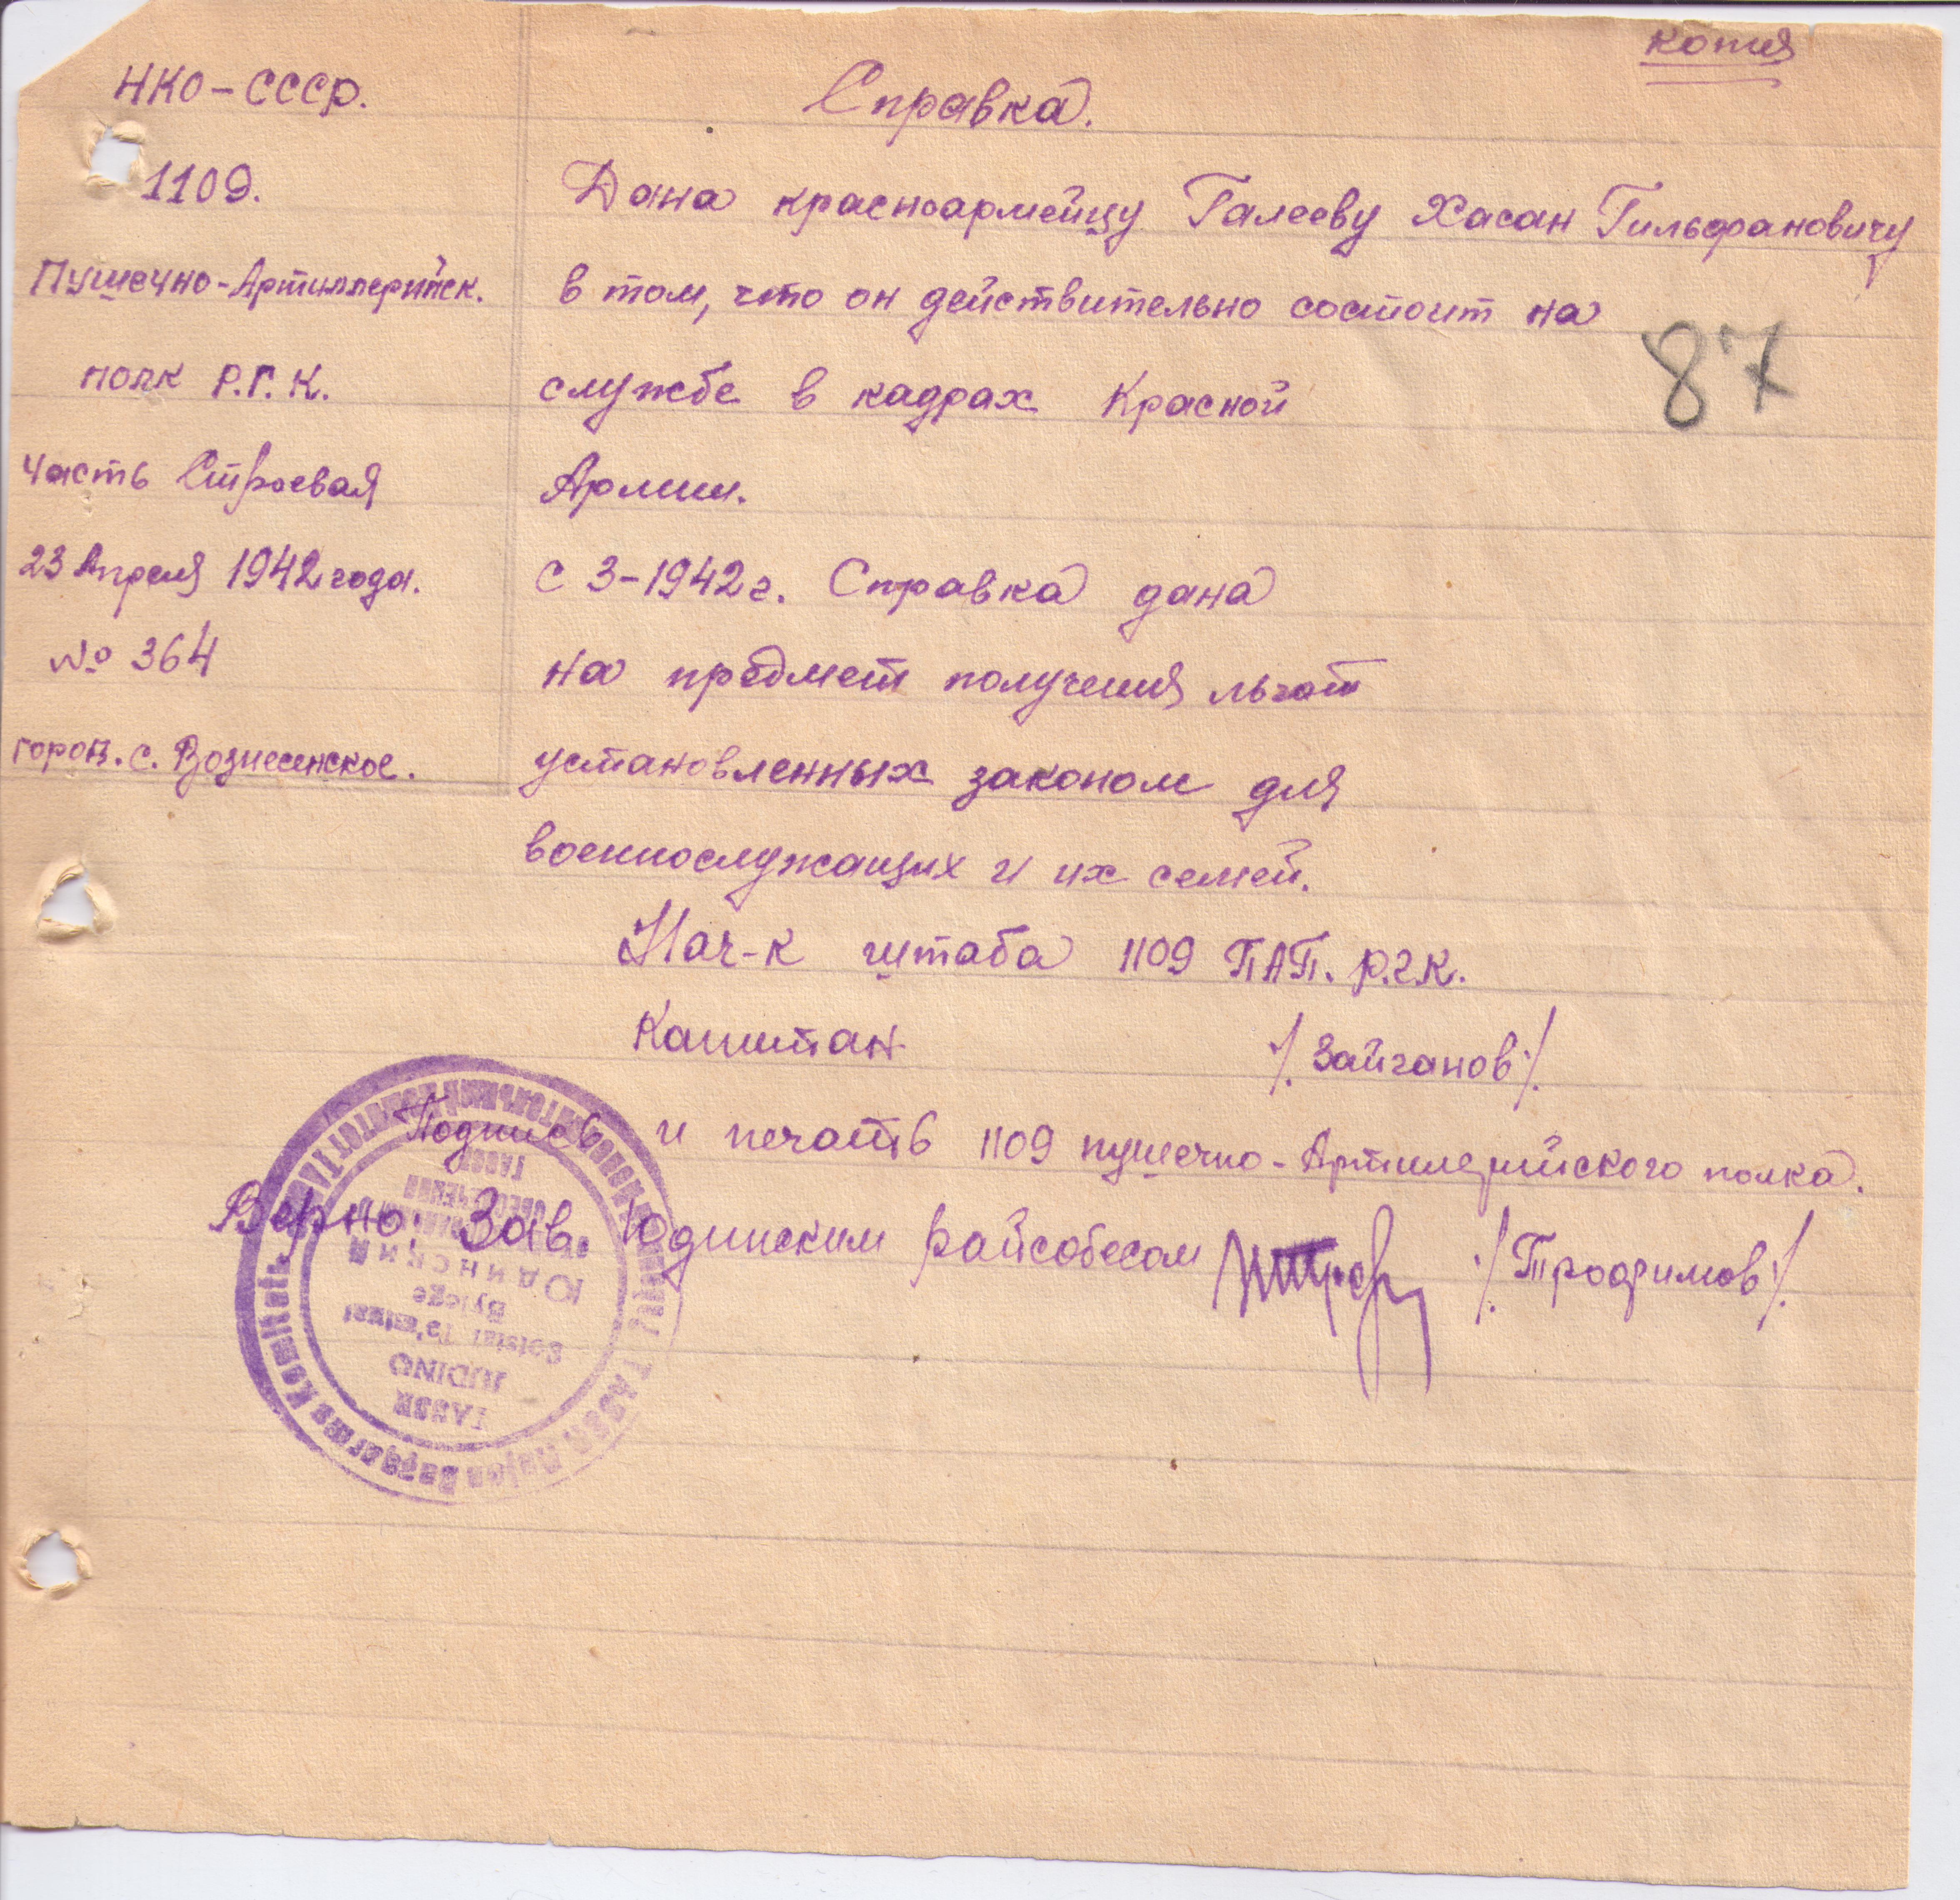 копия
НКО-СССР.
1109.
Пушечно-Артиллерийск.
полк Р.Г.К.
Часть Строевая
23 Апреля 1942 года.
№ 364
город. с. Вознесенское.
Справка.
Дана красноармейцу Галееву Хасан Гильфановичу
в том, что он действительно состоит на
службе в кадрах Красной
Армии.
87
с 3-1942г. Справка дана
на предмет получения льгот
установленных законом для
военнослужащих и их семей.
Нач-к штаба 1109 ПАП. Р.Г.К.
Капитан /Зайганов/.
Подпись и печать 1109 пушечно-Артилерийского полка.
Верно: Зав. Юдинским райсобесом /Трофимов/.
ТАССР
Юдинский
Bylege
Sotsial Tə'minat
JUDINO
TASSR